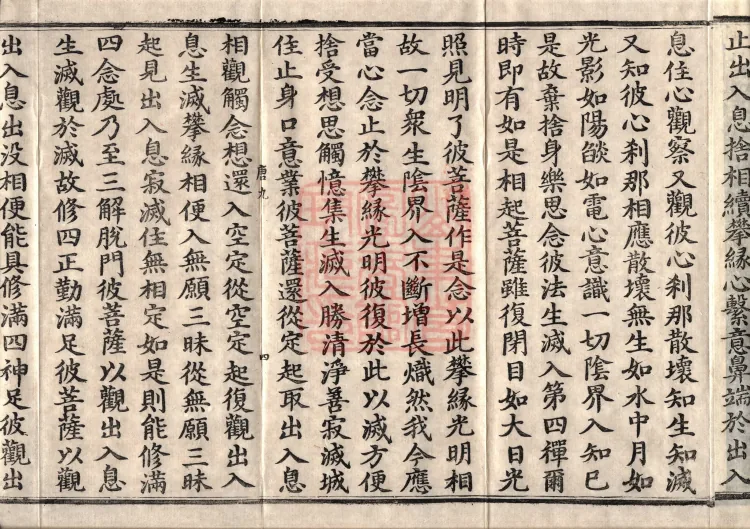 止出入息捨相續攀縁心繫意鼻端於出入
息住心觀察又觀彼心刹那散壞知生知滅
又知彼心刹那相應散壞無生如水中月如
光影如陽燄如電心意識一切陰界入知已
是故棄捨身樂思念彼法生滅入第四禪爾
時即有如是相起菩薩雖復閉目如大日光
照見明了彼菩薩作是念以此攀縁光明相
故一切衆生陰界入不斷增長熾然我今應
當心念止於攀縁光明彼復於此以滅方便
捨受想思觸憶集生滅入勝清淨善寂滅城
住止身口意業彼菩薩還從定起取出入息
唐九 四
相觀觸念想還入空定從空定起復觀出入
息生滅攀縁相便入無願三昧從無願三昧
起見出入息寂滅住無相定如是則能修滿
四念處乃至三解脫門彼菩薩以觀出入息
生滅觀於滅故修四正勤滿足彼菩薩以觀
出入息出没相便能具修滿四神足彼觀出